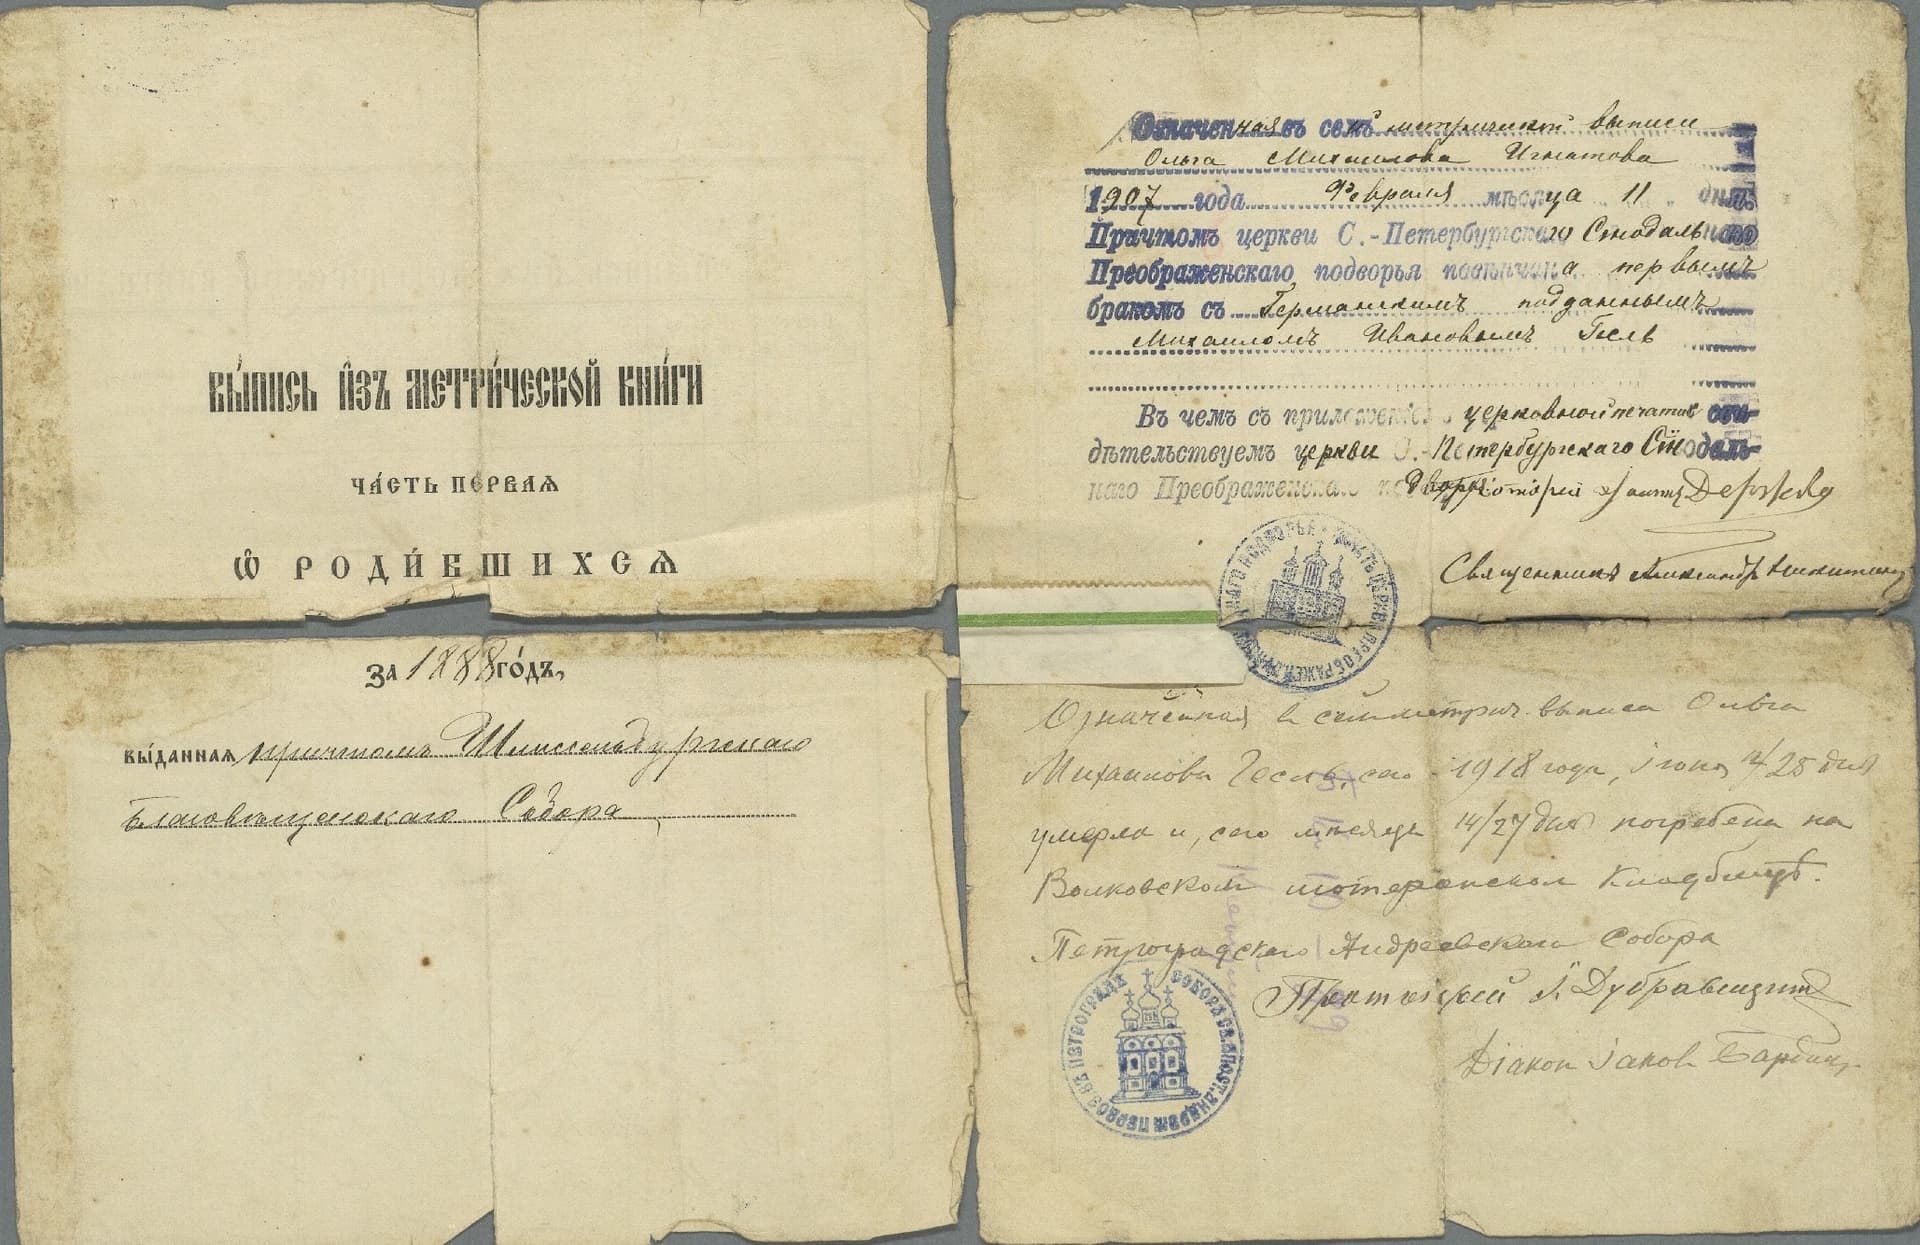 ВЫ́ПИСЬ И҆ЗЪ МЕТРИ́ЧЕСКОЙ КНИ́ГИ
ЧА́СТЬ ПЕ́РВАѦ
Ѡ҆ РОДИ́ВШИХСѦ
ЗА 1888 ГО́ДЪ,
ВЫ́ДАННАѦ причтомъ Шлиссельбургскаго
Благовѣщенскаго Собора
Означенная въ сей метрической выписи
Ольга Михаилова Игнатова
1907 года Февраля мѣсяца 11 дня
Причтомъ церкви С.-Петербургскаго Сѵнодальнаго
Преображенскаго подворья повѣнчана первымъ
бракомъ съ Германскимъ подданнымъ
Михаиломъ Ивановымъ Гесль
Въ чемъ съ приложеніемъ церковной печати сви-
дѣтельствуемъ церкви С.-Петербургскаго Сѵнодаль-
наго Преображенскаго подворья Протоіерей
Священникъ Александръ Никитинъ
Означенная в сей метрич. выписи Ольга
Михаилова Гесль, сего 1918 года, Іюня 12/25 дня
умерла и, сего мѣсяца 14/27 дня погребена на
Волковском лютеранском кладбищѣ.
Петроградскаго Андреевскаго Собора
Протоіерей І. Дубравицкій
Діакон Іаков
СОБОРА СВ. АПОСТ. АНДРЕЯ ПЕРВОЗ. ВЪ ПЕТРОГРАДѢ